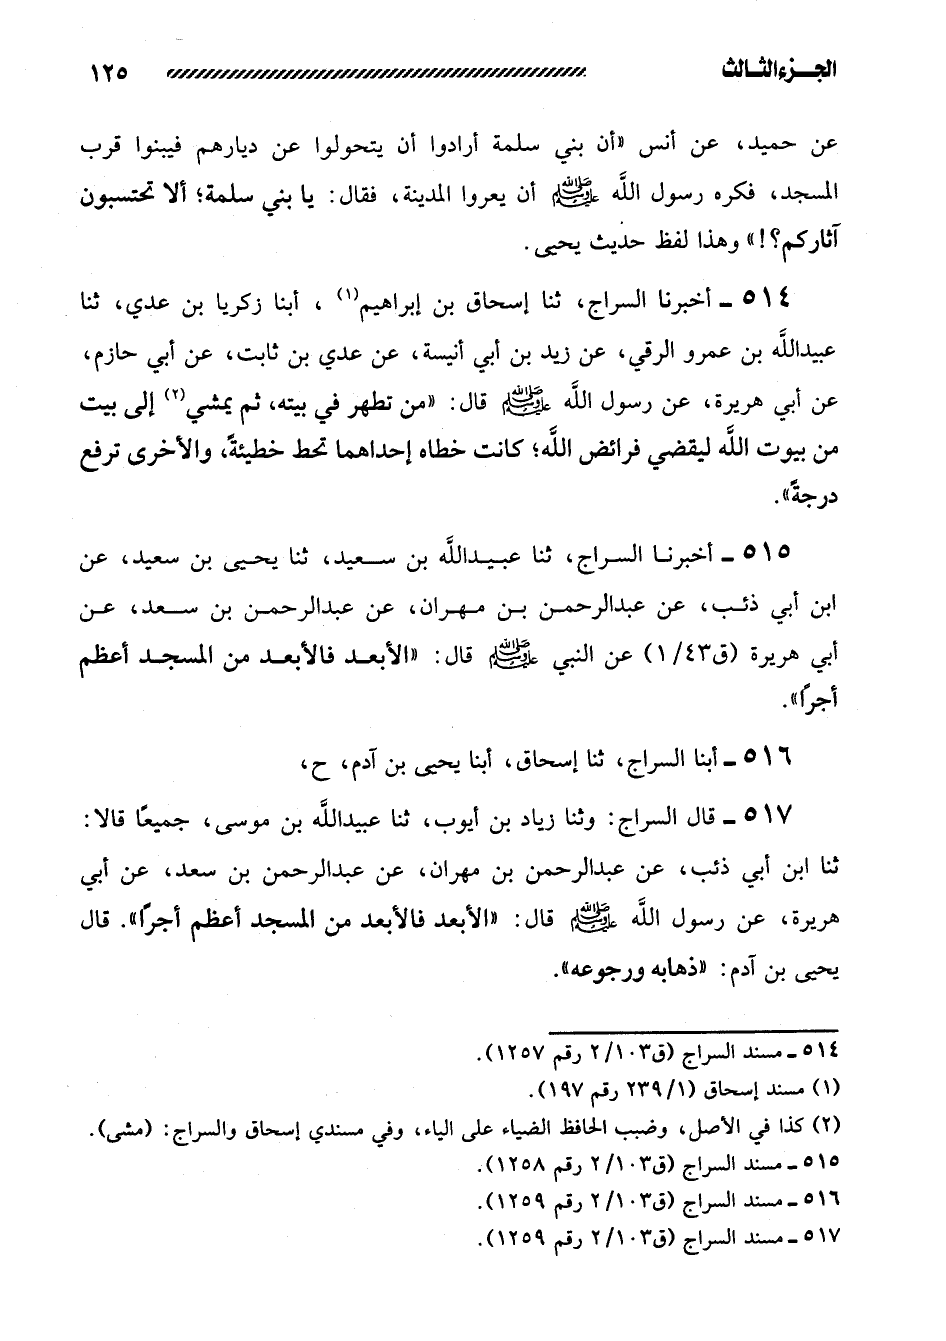 الجزء الثالث ١٢٥
عن حميد، عن أنس «أن بني سلمة أرادوا أن يتحولوا عن ديارهم فيبنوا قرب
المسجد، فكره رسول اللَّه ﷺ أن يعروا المدينة، فقال: يا بني سلمة؛ ألا تحتسبون
آثاركم؟!» وهذا لفظ حديث يحيى.
٥١٤ ـ أخبرنا السراج، ثنا إسحاق بن إبراهيم(١) ، أبنا زكريا بن عدي، ثنا
عبيداللَّه بن عمرو الرقي، عن زيد بن أبي أنيسة، عن عدي بن ثابت، عن أبي حازم،
عن أبي هريرة، عن رسول اللَّه ﷺ قال: «من تطهر في بيته، ثم يمشي(٢) إلى بيت
من بيوت اللَّه ليقضي فرائض اللَّه؛ كانت خطاه إحداهما تحط خطيئةً، والأخرى ترفع
درجةً».
٥١٥ ـ أخبرنا السراج، ثنا عبيداللَّه بن سعيد، ثنا يحيى بن سعيد، عن
ابن أبي ذئب، عن عبدالرحمن بن مهران، عن عبدالرحمن بن سعد، عن
أبي هريرة (ق٤٣/ ١) عن النبي ﷺ قال: «الأبعد فالأبعد من المسجد أعظم
أجرًا».
٥١٦ ـ أبنا السراج، ثنا إسحاق، أبنا يحيى بن آدم، ح،
٥١٧ ـ قال السراج: وثنا زياد بن أيوب، ثنا عبيداللَّه بن موسى، جميعًا قالا:
ثنا ابن أبي ذئب، عن عبدالرحمن بن مهران، عن عبدالرحمن بن سعد، عن أبي
هريرة، عن رسول اللَّه ﷺ قال: «الأبعد فالأبعد من المسجد أعظم أجرًا». قال
يحيى بن آدم: «ذهابه ورجوعه».
٥١٤ ـ مسند السراج (ق١٠٣/ ٢ رقم ١٢٥٧).
(١) مسند إسحاق (١/ ٢٣٩ رقم ١٩٧).
(٢) كذا في الأصل، وضبب الحافظ الضياء على الياء، وفي مسندي إسحاق والسراج: (مشى).
٥١٥ ـ مسند السراج (ق١٠٣/ ٢ رقم ١٢٥٨).
٥١٦ ـ مسند السراج (ق١٠٣/ ٢ رقم ١٢٥٩).
٥١٧ ـ مسند السراج (ق١٠٣/ ٢ رقم ١٢٥٩).